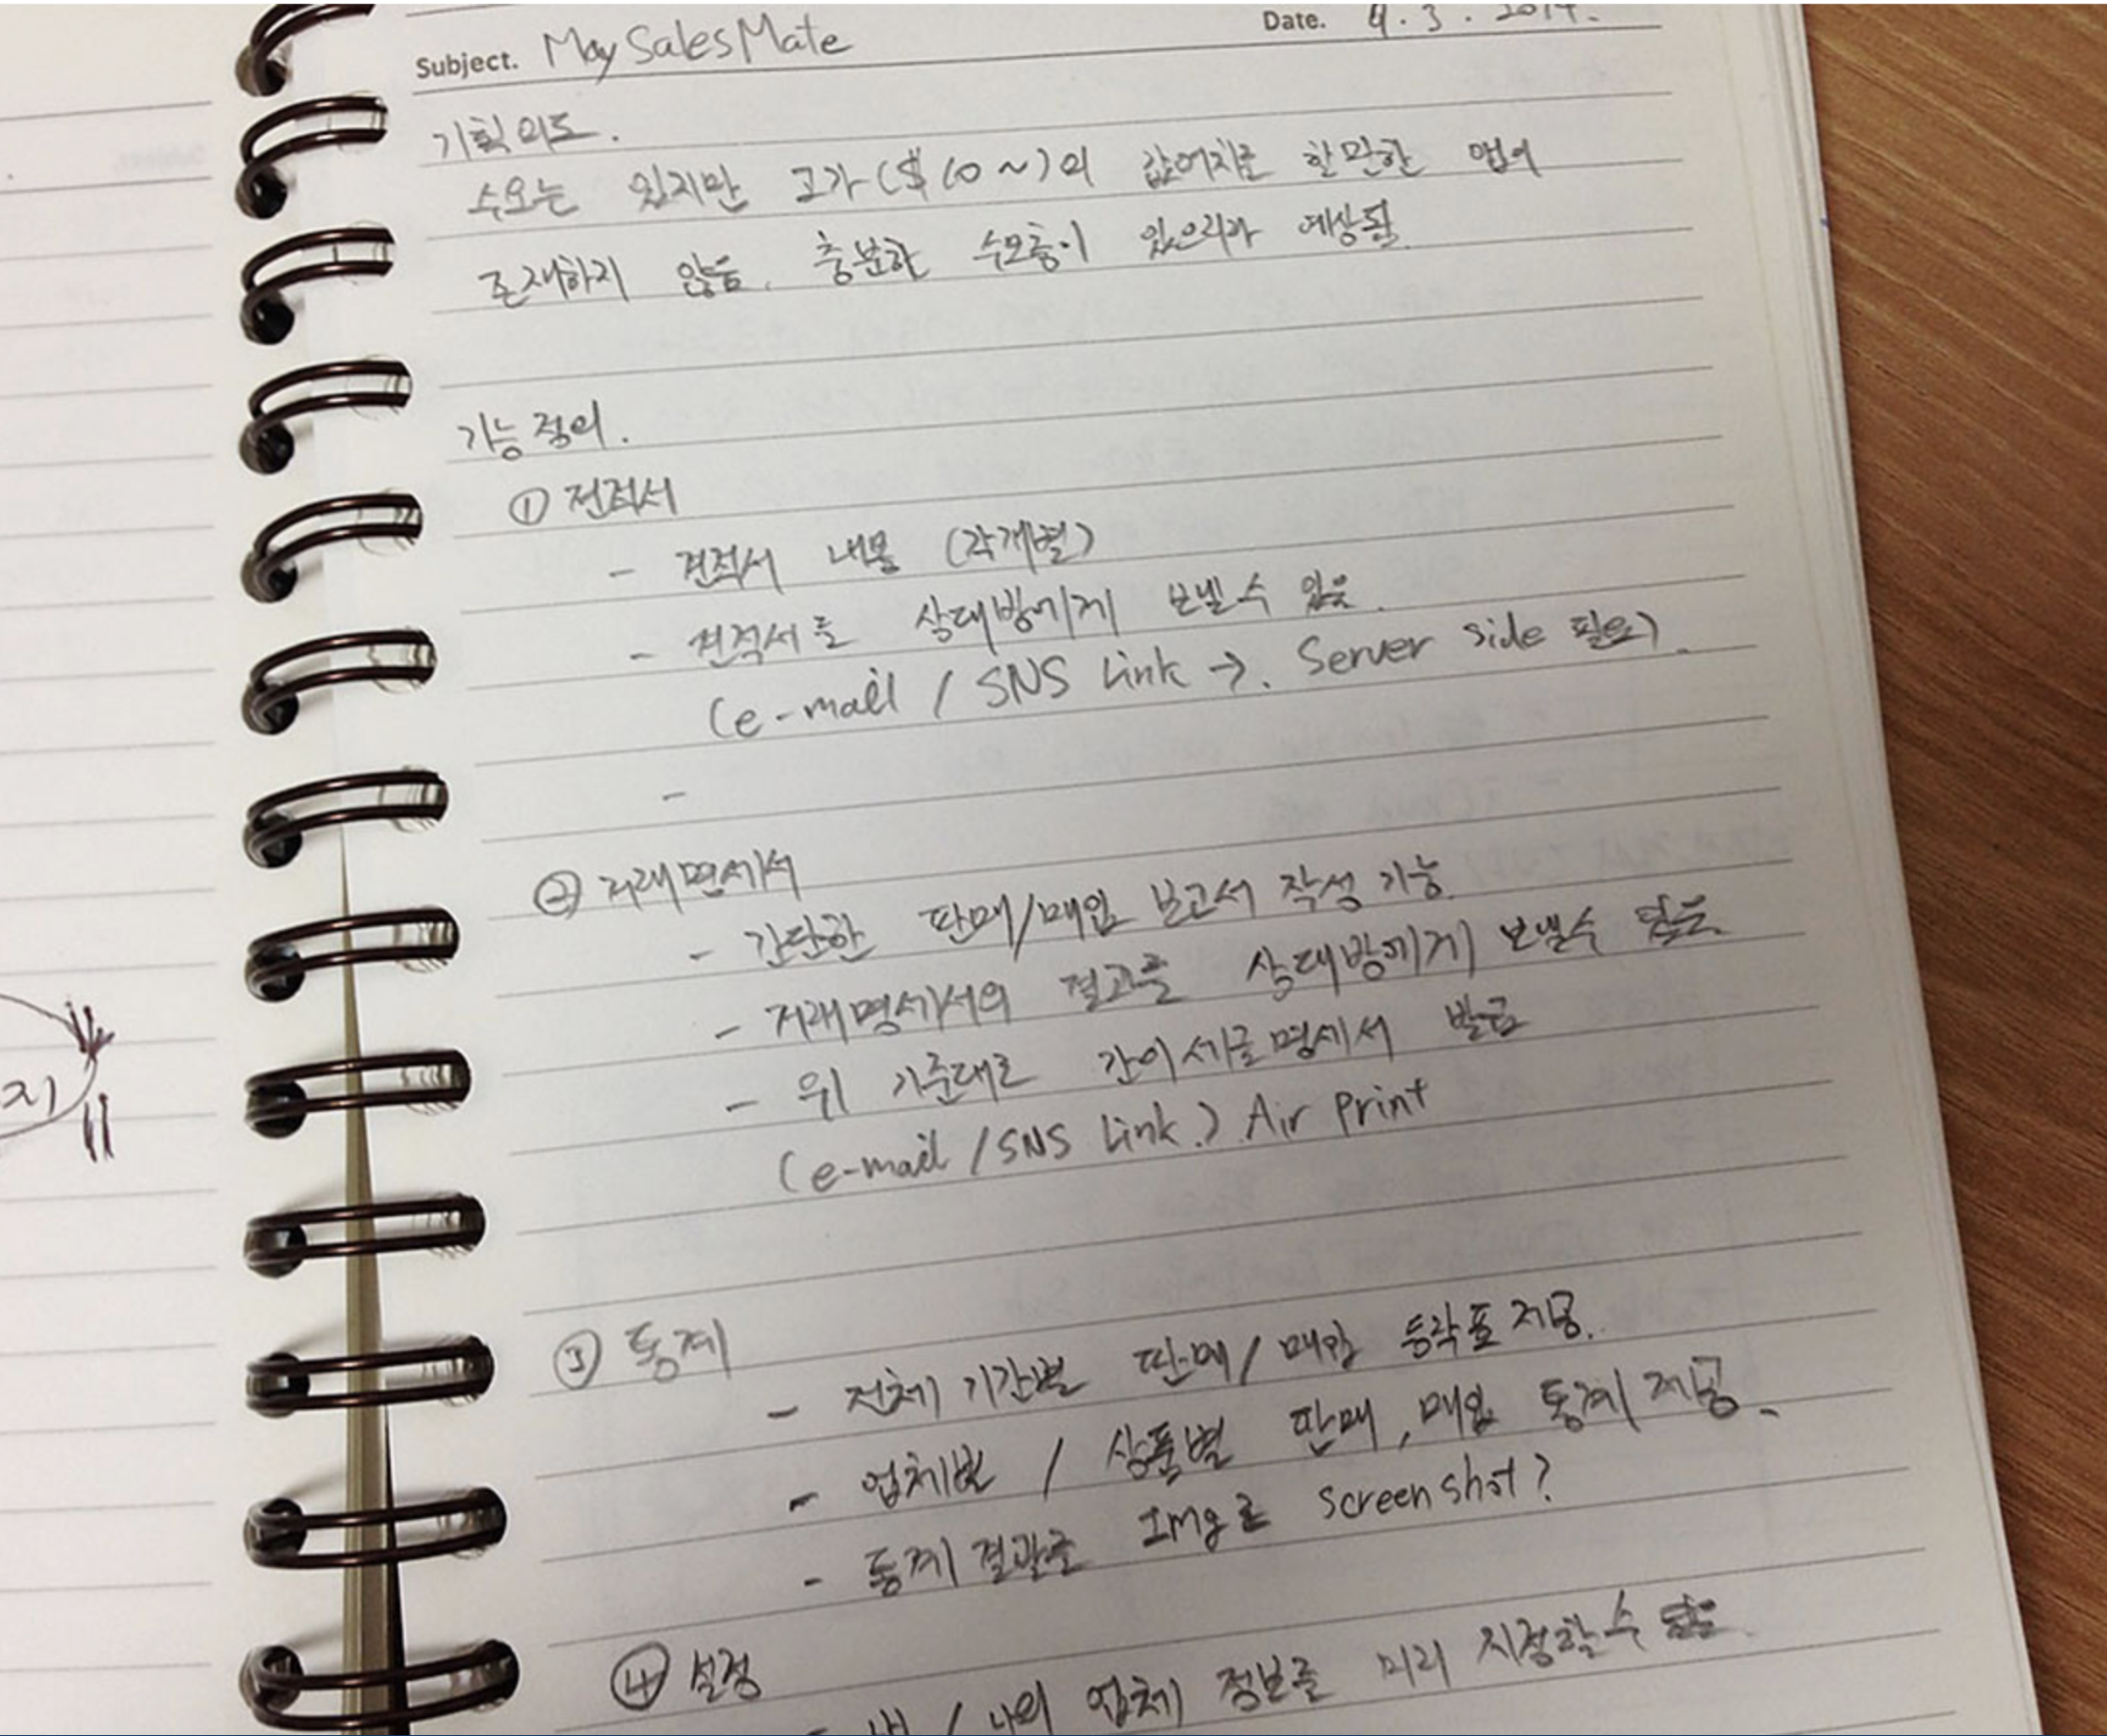 Subject. May Sales Mate
Date. 4. 3. 2014.
기획의도.
수요는 있지만 고가($10~)의 값어치를 할만한 앱이
존재하지 않음. 충분한 수요층이 있으리라 예상됨.
기능정의.
① 견적서
- 견적서 내용 (각개별)
- 견적서를 상대방에게 보낼 수 있음.
(e-mail / SNS Link →. Server side 필요).
-
② 거래명세서
- 간단한 판매/매입 보고서 작성 기능.
- 거래명세서의 결과를 상대방에게 보낼수 있음.
- 위 기준대로 간이세금명세서 발급
(e-mail / SNS Link.) Air Print
③ 통계
- 전체 기간별 판매/매입 등락표 제공.
- 업체별 / 상품별 판매, 매입 통계 제공.
- 통계 결과를 Img로 screen shot?
④ 설정
- / 나의 업체 정보를 미리 지정할 수 있음.
지